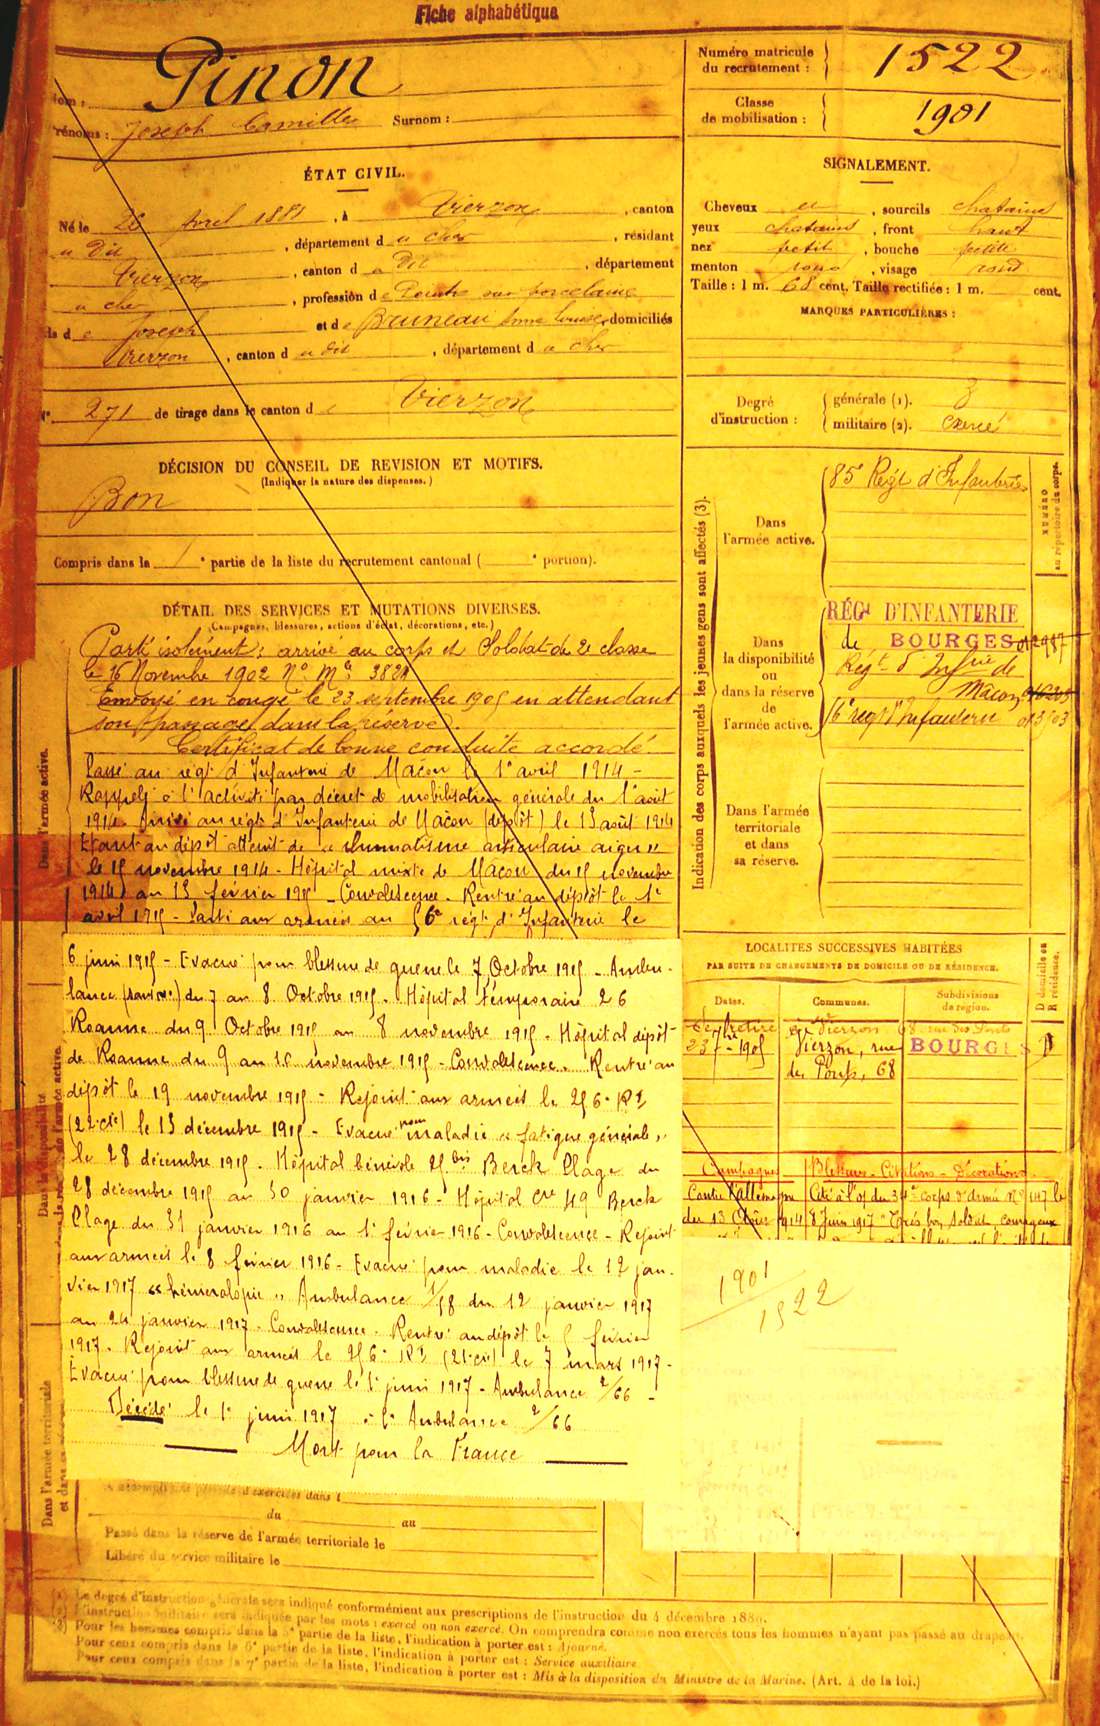 Fiche alphabétique
Nom : Pinon
Prénoms : Joseph Camille Surnom :
Numéro matricule du recrutement : 1522
Classe de mobilisation : 1901
ÉTAT CIVIL.
Né le 26 Avril 1881, à Vierzon, canton
u dit, département d u cher, résidant
Vierzon, canton d u Dit, département
u cher, profession d e Peintre sur porcelaine
fils d e Joseph et d e Bruneau Anne Louise, domiciliés
Vierzon, canton d u dit, département d u cher
N° 271 de tirage dans le canton d e Vierzon
SIGNALEMENT.
Cheveux et, sourcils chatains
yeux chatains, front haut
nez petit, bouche petite
menton rond, visage rond
Taille : 1 m. 68 cent. Taille rectifiée : 1 m. cent.
MARQUES PARTICULIÈRES :
Degré d'instruction :
générale (1). 3
militaire (2). exercé
DÉCISION DU CONSEIL DE REVISION ET MOTIFS.
(Indiquer la nature des dispenses.)
Bon
Compris dans la 1e partie de la liste du recrutement cantonal ( e portion).
DÉTAIL DES SERVICES ET MUTATIONS DIVERSES.
(Campagnes, blessures, actions d'éclat, décorations, etc.)
Dans l'armée active.
Parti isolément ; arrivé au corps et Soldat de 2e classe
le 16 Novembre 1902 No Mle 3824
Envoyé en congé le 23 septembre 1905 en attendant
son passage dans la réserve
Certificat de bonne conduite accordé.
Passé au régt d'Infanterie de Mâcon le 1er avril 1914 -
Rappelé à l'activité par décret de mobilisation générale du 1er août
1914. Arrivé au régt d'Infanterie de Mâcon (dépôt) le 13 août 1914
Etant au dépôt atteint de "rhumatisme articulaire aigu"
le 15 novembre 1914 - Hôpital mixte de Mâcon du 15 novembre
1914 au 13 février 1915 - Convalescence - Rentré au dépôt le 1er
avril 1915 - Parti aux armées au 56e régt d'Infanterie le
6 juin 1915 - Evacué pour blessure de guerre le 7 Octobre 1915 - Ambu-
lance du 7 au 8 Octobre 1915 - Hôpital temporaire 26
Roanne du 9 Octobre 1915 au 8 novembre 1915 - Hôpital dépôt
de Roanne du 9 au 16 novembre 1915 - Convalescence. Rentré au
dépôt le 19 novembre 1915 - Rejoint aux armées le 256e RI
(22e cie) le 13 décembre 1915 - Evacué pour maladie "fatigue générale"
le 28 décembre 1915 - Hôpital bénévole 25 bis Berck Plage du
28 décembre 1915 au 30 janvier 1916 - Hôpital cre 49 Berck
Plage du 31 janvier 1916 au 1er février 1916 - Convalescence - Rejoint
aux armées le 8 février 1916 - Evacué pour maladie le 12 jan-
vier 1917 "héméralopie" Ambulance 1/58 du 12 janvier 1917
au 24 janvier 1917 - Convalescence - Rentré au dépôt le 5 février
1917. Rejoint aux armées le 256e RI (21e cie) le 7 mars 1917 -
Evacué pour blessure de guerre le 1er juin 1917 - Ambulance 2/66 -
Décédé le 1er juin 1917 à l'Ambulance 2/66
Mort pour la France
Indication des corps auxquels les jeunes gens sont affectés (3).
NUMÉRO au répertoire du corps.
Dans l'armée active.
85 Régt d'Infanterie
Dans la disponibilité ou dans la réserve de l'armée active.
RÉGt D'INFANTERIE
de BOURGES 012987
Régt d'Infrie de
Macon
56e régt d'Infanterie 013203
Dans l'armée territoriale et dans sa réserve.
LOCALITÉS SUCCESSIVES HABITÉES
PAR SUITE DE CHANGEMENTS DE DOMICILE OU DE RÉSIDENCE.
Dates.
Communes.
Subdivisions de région.
D domicile ou R résidence.
Se retire à Vierzon 68 rue des Ponts
23 7bre 1905 Vierzon, rue des Ponts, 68 BOURGES D
Campagnes
Blessures - Citations - Décorations.
Contre l'allemagne
du 13 Août 1914
Cité à l'O/ du 34e corps d'armée No 147 le
8 Juin 1917 "Très bon soldat, courageux
1901
1522
Dans la disponibilité
Dans l'armée territoriale
du au
Passé dans la réserve de l'armée territoriale le
Libéré du service militaire le
(1) Le degré d'instruction générale sera indiqué conformément aux prescriptions de l'instruction du 4 décembre 1889.
(2) L'instruction militaire sera indiquée par les mots : exercé ou non exercé. On comprendra comme non exercés tous les hommes n'ayant pas passé au drapeau.
(3) Pour les hommes compris dans la 5e partie de la liste, l'indication à porter est : Ajourné.
Pour ceux compris dans la 6e partie de la liste, l'indication à porter est : Service auxiliaire.
Pour ceux compris dans la 7e partie de la liste, l'indication à porter est : Mis à la disposition du Ministre de la Marine. (Art. 4 de la loi.)